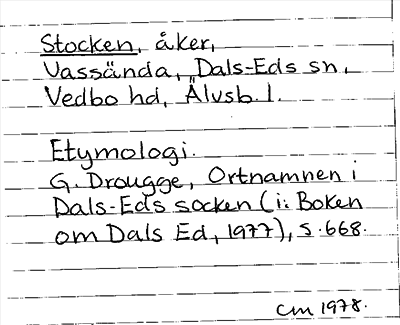 Stocken, åker,
Vassända, Dals-Eds sn,
Vedbo hd, Älvsb. l.
Etymologi.
G. Drougge, Ortnamnen i
Dals-Eds socken (i: Boken
om Dals Ed, 1977), s. 668.
CM 1978.